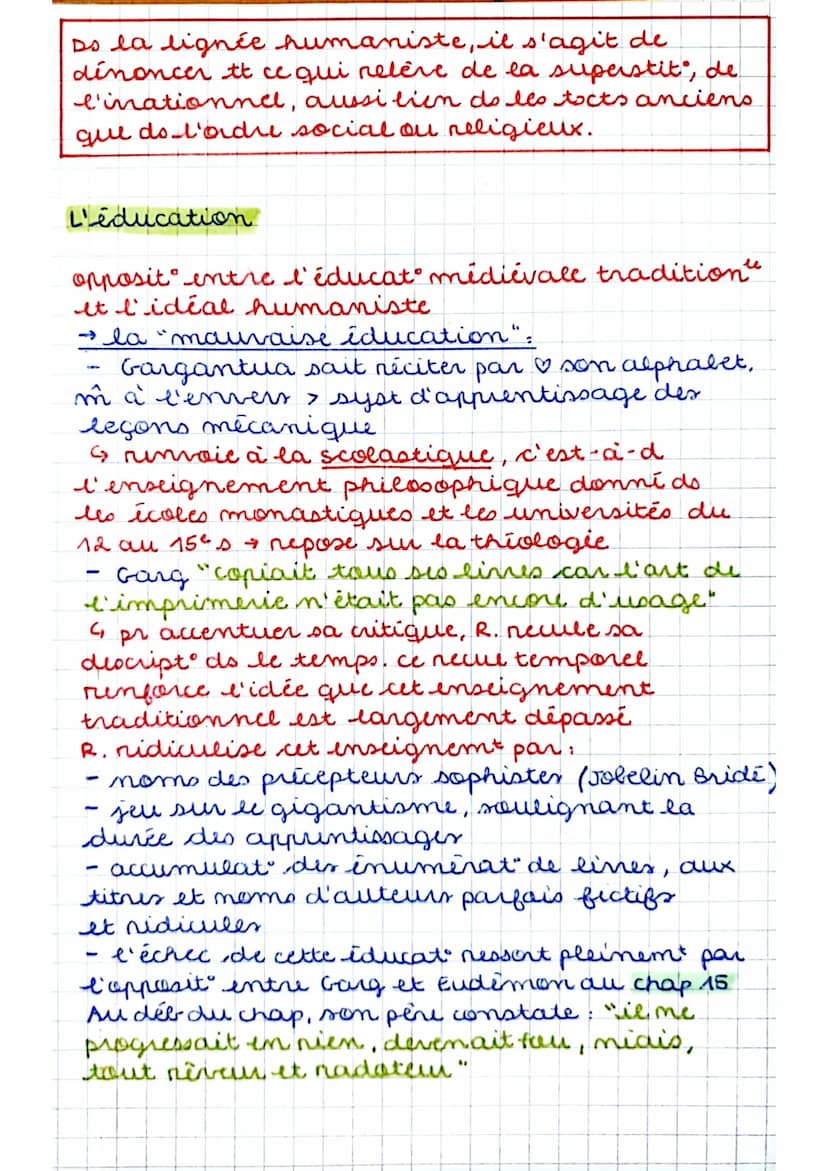 Ds la lignée humaniste, il s'agit de
dénoncer tt ce qui relève de la superstit°, de
l'irrationnel, aussi bien ds les tocts anciens
que ds l'ordre social ou religieux.
L'éducation
opposit° entre l'éducat° médiévale tradition^le
et l'idéal humaniste
→ la "mauvaise éducation":
- Gargantua sait réciter par ♡ son alphabet,
m̂ à l'envers > syst d'apprentissage des
leçons mécanique
↳ renvoie à la scolastique, c'est-à-d
l'enseignement philosophique donné ds
les écoles monastiques et les universités du
12 au 15e s → repose sur la théologie
- Garg "copiait tous ses livres car l'art de
l'imprimerie n'était pas encore d'usage"
↳ pr accentuer sa critique, R. recule sa
descript° ds le temps. ce recul temporel
renforce l'idée que cet enseignement
traditionnel est largement dépassé
R. ridiculise cet enseignemt par:
- noms des précepteurs sophistes (Jobelin Bridé)
- jeu sur le gigantisme, soulignant la
durée des apprentissages
- accumulat° des énumérat° de livres, aux
titres et noms d'auteurs parfois fictifs
et ridicules
- l'échec de cette éducat° ressort pleinemt par
l'opposit° entre Garg et Eudémon au chap 15
Au déb du chap, son père constate: "il ne
progressait en rien, devenait fou, niais,
tout rêveur et radoteur"